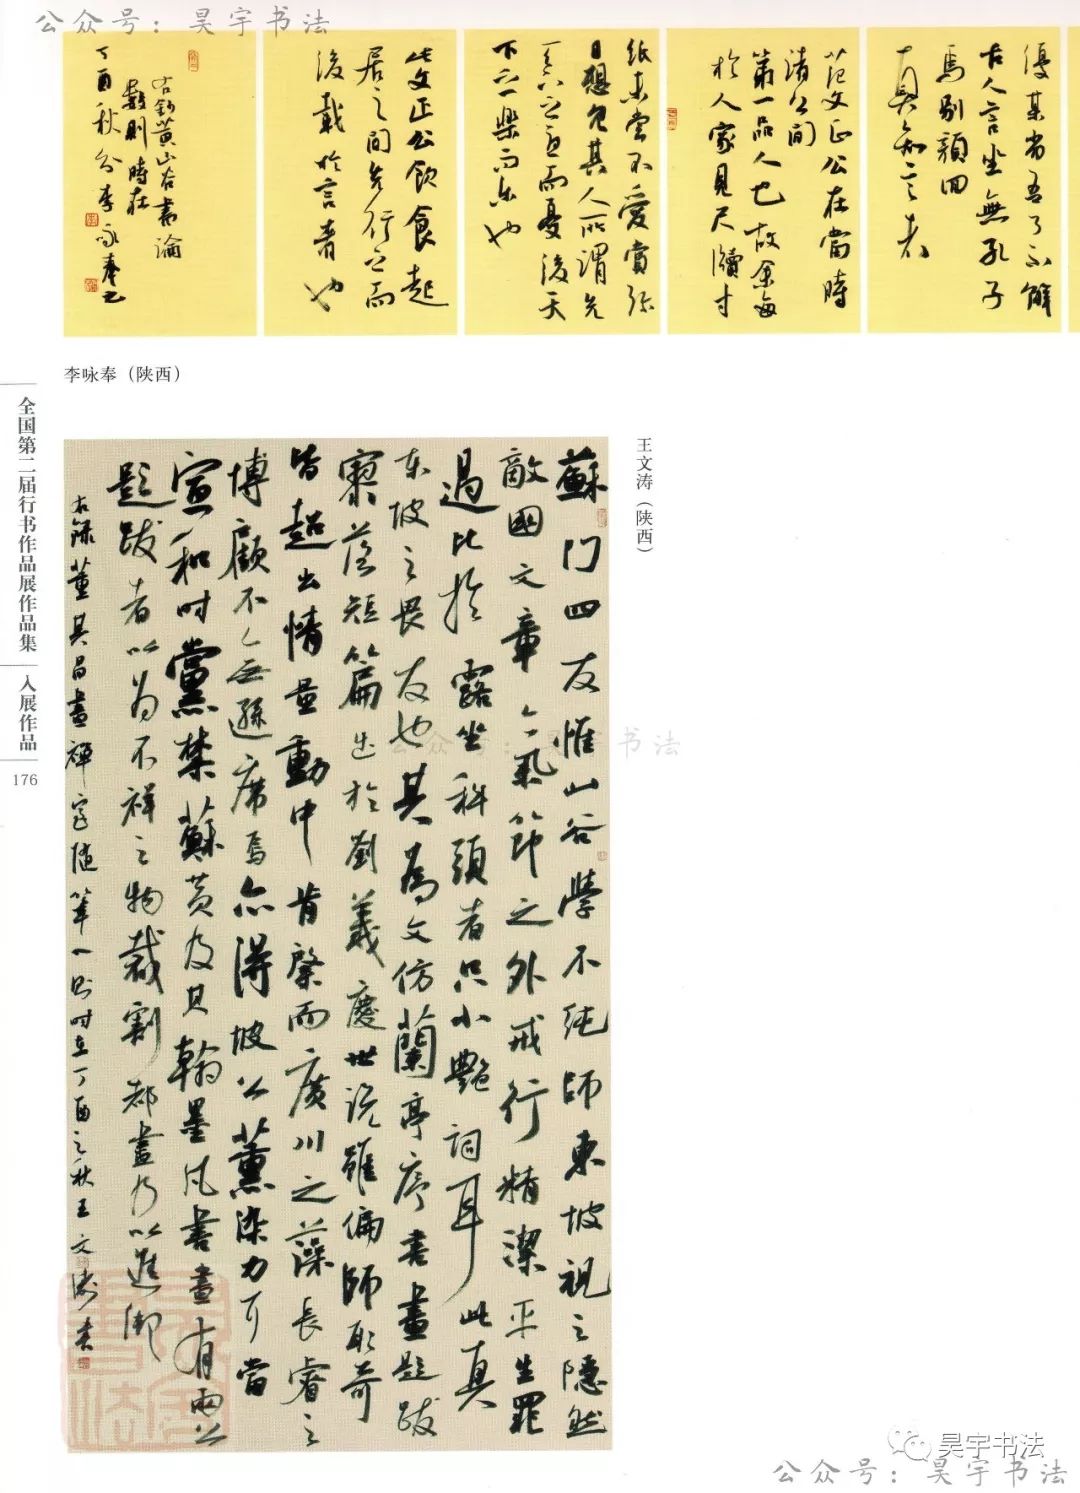 公众号：昊宇书法
優某吾了不解
古人言坐無孔子
焉別顏回
真知言者
范文正公在當時
諸公間
第一品人也故余每
於人家見尺牘寸
紙未嘗不愛賞弥
日想見其人所謂先
天下之憂而憂後天
下之樂而樂也
此文正公飲食起
居之間先行之而
後載於言者也
右鈔黃山谷書論
數則時在
丁酉秋分李詠奉書
李咏奉（陕西）
全国第二届行书作品展作品集
入展作品
176
王文涛（陕西）
蘇門四友惟山谷學不純師東坡視之隱然
敵國文章氣節之外戒行精潔平生罪
過比於露坐科頭者只小艷詞耳此真
東坡之畏友也其為文仿蘭亭序書畫題跋
寥落短篇出於劉義慶世說雖偏師取奇
皆超出情量動中肯綮而廣川之藻長睿之
博顧不無遜席焉亦得坡公薰染力可當
宣和時黨禁蘇黃及其翰墨凡書畫有兩公
題跋者以為不祥之物裁割都盡乃以進御
右錄董其昌畫禪室隨筆一則時在丁酉之秋王文濤書
公众号：昊宇书法
昊宇书法
公众号：昊宇书法